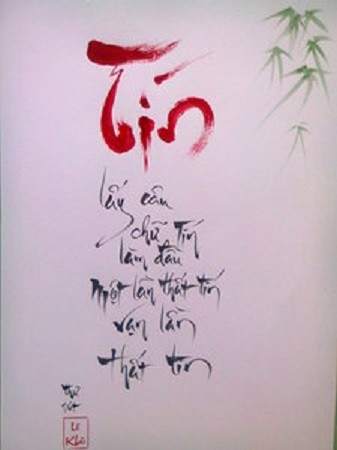 Tín
lấy câu
chữ tín
làm đầu
một lần thất tín
vạn lần
thất tin
Lê
Khô